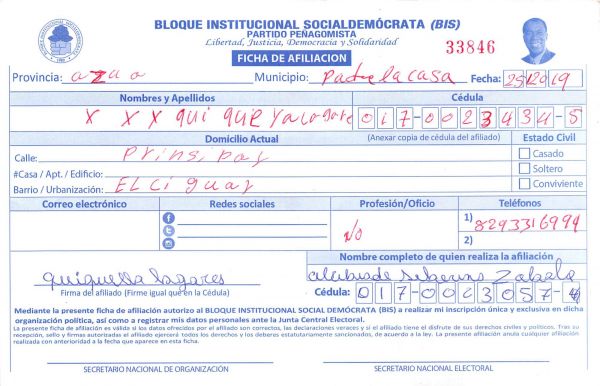 BLOQUE INSTITUCIONAL SOCIALDEMÓCRATA (BIS)
PARTIDO PEÑAGOMISTA
Libertad, Justicia, Democracia y Solidaridad
33846
FICHA DE AFILIACION
Provincia: azua Municipio: Padre la casa Fecha: 25/12019
Nombres y Apellidos Cédula
X X X qui que ya 017-0023434-5
Domicilio Actual (Anexar copia de cédula del afiliado) Estado Civil
Calle: Prinsipay Casado
#Casa / Apt. / Edificio: Soltero
Barrio / Urbanización: EL Ci guay Conviviente
Correo electrónico Redes sociales Profesión/Oficio Teléfonos
NO 1) 8293316994
2)
Nombre completo de quien realiza la afiliación
lagares Zabala
Firma del afiliado (Firme igual que en la Cédula) Cédula: 017-0003057-4
Mediante la presente ficha de afiliación autorizo al BLOQUE INSTITUCIONAL SOCIAL DEMÓCRATA (BIS) a realizar mi inscripción única y exclusiva en dicha
organización política, así como a registrar mis datos personales ante la Junta Central Electoral.
La presente ficha de afiliación es válida si los datos ofrecidos por el afiliado son correctos, las declaraciones veraces y si el afiliado tiene el disfrute de sus derechos civiles y políticos. Tras su
recepción, sello y firmas autorizadas el afiliado ejercerá todos los derechos y los deberes estatutariamente sancionados, de acuerdo a la ley. La presente afiliación anula cualquier afiliación
realizada con anterioridad a la fecha que aparece en esta ficha.
SECRETARIO NACIONAL DE ORGANIZACIÓN SECRETARIO NACIONAL ELECTORAL